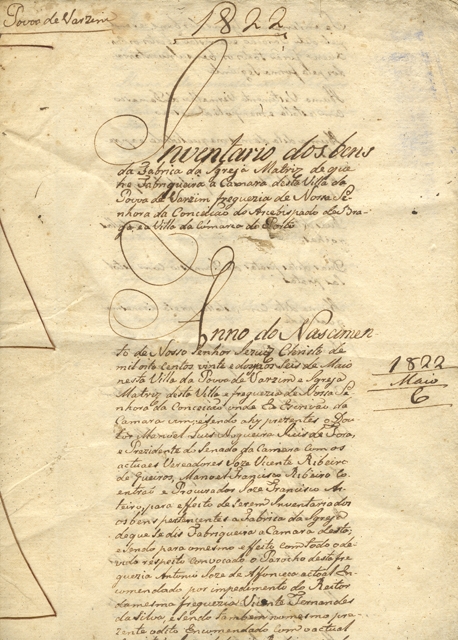 Povoa de Varzim
1822
Inventario dos bens
da Fabrica da Igreja Matriz de que
he Fabriqueira a Camara desta Villa da
Povoa de Varzim freguezia de Nossa Se-
nhora da Conceicão do Arcebispado de Bra-
ga, e a Villa da Comarca do Porto
Anno do Nascimen
to de Nosso Senhor Jezus Christo de
mil oito centos vinte e dous aos Seis de Maio
nesta Villa da Povoa de Varzim e Igreja
Matriz desta Villa e freguezia de Nossa Se-
nhora da Conceicão onde Eu Escrivão da
Camara sendo ahy prezentes o Dou
tor Manoel Luis Nogueira Juis de Fora,
e Prezidente do Senado da Camara com os
actuaes Vereadores Joze Vicente Ribeiro
de Queiros, Manoel Francisco Ribeiro Co
entrei e Procurador Joze Francisco An
teiro, para effeito de serem Inventariados
os bens pertencentes a Fabrica da Igreja
de que se dis Fabriqueira a Camara desta,
e sendo para o mesmo effeito com todo o de-
vido respeito convocado o Parocho desta fre
guezia Antonio Joze de Affonceca actual En
comendado por impedimento do Reitor
da mesma freguezia Vicente Fernandes
da Silva, e sendo tambem no mesmo pre-
zente o dito Encomendado com o actual
1822
Maio
6